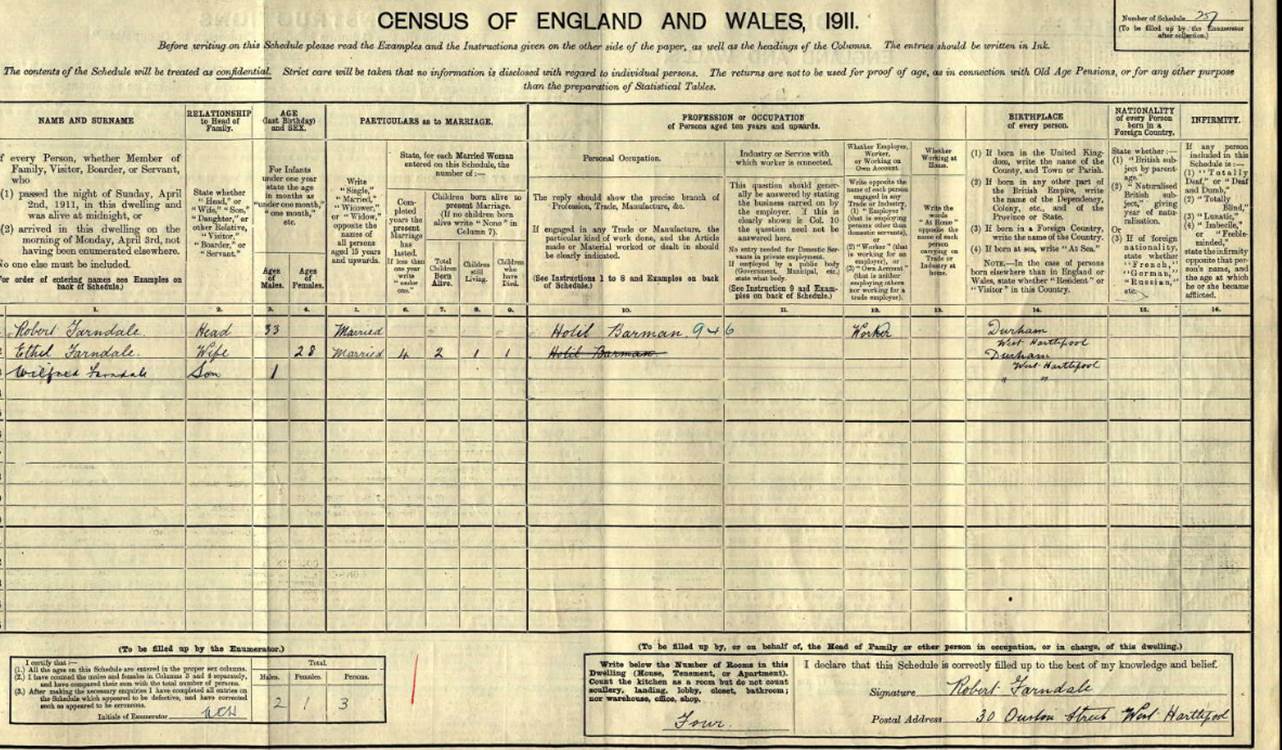 CENSUS OF ENGLAND AND WALES, 1911.
Number of Schedule 257
(To be filled up by the Enumerator
after collection.)
Before writing on this Schedule please read the Examples and the Instructions given on the other side of the paper, as well as the headings of the Columns. The entries should be written in Ink.
The contents of the Schedule will be treated as confidential. Strict care will be taken that no information is disclosed with regard to individual persons. The returns are not to be used for proof of age, as in connection with Old Age Pensions, or for any other purpose
than the preparation of Statistical Tables.
NAME AND SURNAME
f every Person, whether Member of
Family, Visitor, Boarder, or Servant,
who
(1) passed the night of Sunday, April
2nd, 1911, in this dwelling and
was alive at midnight, or
(2) arrived in this dwelling on the
morning of Monday, April 3rd, not
having been enumerated elsewhere.
No one else must be included.
For order of entering names see Examples on
back of Schedule.)
RELATIONSHIP
to Head of
Family.
State whether
"Head," or
"Wife," "Son,"
"Daughter," or
other Relative,
"Visitor,"
"Boarder," or
"Servant."
AGE
(last Birthday)
and SEX.
For Infants
under one year
state the age
in months as
"under one month,"
"one month,"
etc.
Ages
of
Males.
Ages
of
Females.
PARTICULARS as to MARRIAGE.
Write
"Single,"
"Married,"
"Widower,"
or "Widow,"
opposite the
names of
all persons
aged 15 years
and upwards.
State, for each Married Woman
entered on this Schedule, the
number of:—
Com-
pleted
years the
present
Marriage
has
lasted.
If less than
one year
write
"under
one."
Children born alive to
present Marriage.
(If no children born
alive write "None" in
Column 7).
Total
Children
Born
Alive.
Children
still
Living.
Children
who
have
Died.
PROFESSION or OCCUPATION
of Persons aged ten years and upwards.
Personal Occupation.
The reply should show the precise branch of
Profession, Trade, Manufacture, &c.
If engaged in any Trade or Manufacture, the
particular kind of work done, and the Article
made or Material worked or dealt in should
be clearly indicated.
(See Instructions 1 to 8 and Examples on back
of Schedule.)
Industry or Service with
which worker is connected.
This question should gener-
ally be answered by stating
the business carried on by
the employer. If this is
clearly shown in Col. 10
the question need not be
answered here.
No entry needed for Domestic Ser-
vants in private employment.
If employed by a public body
(Government, Municipal, etc.)
state what body.
(See Instruction 9 and Exam-
ples on back of Schedule.)
Whether Employer,
Worker,
or Working on
Own Account.
Write opposite the
name of each person
engaged in any
Trade or Industry,
(1) "Employer"
(that is employing
persons other than
domestic servants),
or
(2) "Worker" (that
is working for an
employer), or
(3) "Own Account"
(that is neither
employing others
nor working for a
trade employer).
Whether
Working at
Home.
Write the
words
"At Home"
opposite the
name of each
person
carrying on
Trade or
Industry at
home.
BIRTHPLACE
of every person.
(1) If born in the United King-
dom, write the name of the
County, and Town or Parish.
(2) If born in any other part of
the British Empire, write
the name of the Dependency,
Colony, etc., and of the
Province or State.
(3) If born in a Foreign Country,
write the name of the Country.
(4) If born at sea, write "At Sea."
NOTE.—In the case of persons
born elsewhere than in England or
Wales, state whether "Resident" or
"Visitor" in this Country.
NATIONALITY
of every Person
born in a
Foreign Country.
State whether:—
(1) "British sub-
ject by parent-
age,"
(2) "Naturalised
British sub-
ject," giving
year of natu-
ralisation.
Or
(3) If of foreign
nationality,
state whether
"French,"
"German,"
"Russian,"
etc.
INFIRMITY.
If any person
included in this
Schedule is:—
(1) "Totally
Deaf," or "Deaf
and Dumb,"
(2) "Totally
Blind,"
(3) "Lunatic,"
(4) "Imbecile,"
or "Feeble-
minded,"
state the infirmity
opposite that per-
son's name, and
the age at which
he or she became
afflicted.
1. 2. 3. 4. 5. 6. 7. 8. 9. 10. 11. 12. 13. 14. 15. 16.
Robert Farndale. Head 33 Married Hotel Barman 946 Worker Durham
West Hartlepool
2 Ethel Farndale. Wife 28 Married 4 2 1 1 Hotel Barman Durham
West Hartlepool
3 Wilfred Farndale Son 1 " "
(To be filled up by the Enumerator.)
I certify that:—
(1.) All the ages on this Schedule are entered in the proper sex columns.
(2.) I have counted the males and females in Columns 3 and 4 separately,
and have compared their sum with the total number of persons.
(3.) After making the necessary enquiries I have completed all entries on
the Schedule which appeared to be defective, and have corrected
such as appeared to be erroneous.
Initials of Enumerator
Total.
Males. Females. Persons.
2 1 3
(To be filled up by, or on behalf of, the Head of Family or other person in occupation, or in charge, of this dwelling.)
Write below the Number of Rooms in this
Dwelling (House, Tenement, or Apartment).
Count the kitchen as a room but do not count
scullery, landing, lobby, closet, bathroom;
nor warehouse, office, shop.
Four.
I declare that this Schedule is correctly filled up to the best of my knowledge and belief.
Signature Robert Farndale
Postal Address 30 Ouston Street West Hartlepool